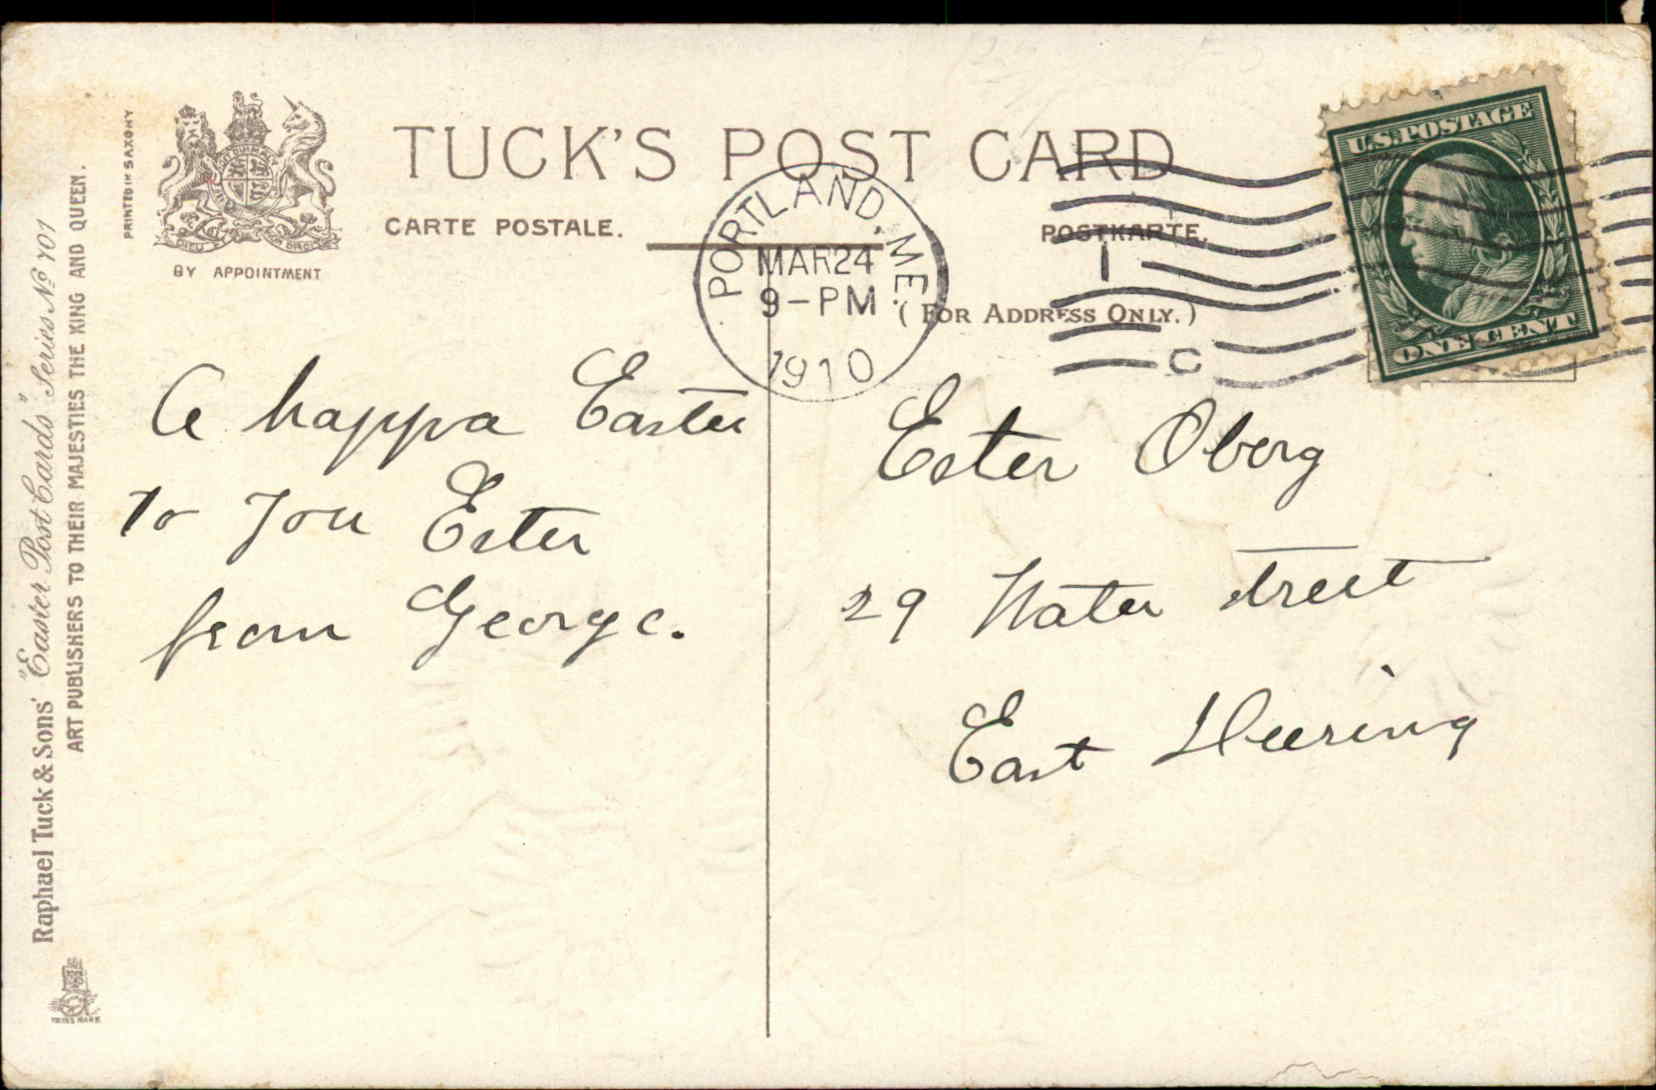 TUCK'S POST CARD
CARTE POSTALE.
POSTKARTE.
(FOR ADDRESS ONLY.)
BY APPOINTMENT
PRINTED IN SAXONY
Raphael Tuck & Sons' "Easter Post Cards" Series No 701
ART PUBLISHERS TO THEIR MAJESTIES THE KING AND QUEEN.
TRADE MARK
PORTLAND, ME.
MAR 24
9-PM
1910
I
C
U.S. POSTAGE
ONE CENT
A happa Easter
to you Ester
from George.
Ester Oberg
29 Water street
East Deering